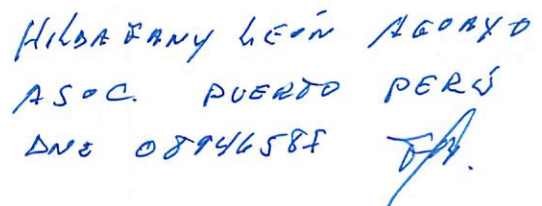 HILDA FANY LEÓN AGOAYO
ASOC. PUERTO PERÚ
DNI 08946587